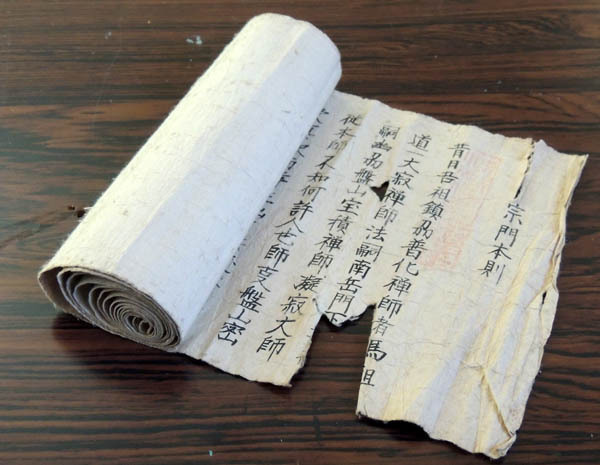 宗門本則
昔日吾祖鎮刕普化禪師者馬祖
道一大寂禪師法嗣南岳門下
嗣幽刕盤山宝積禪師凝寂大師
從本師不知何許人也師受盤山密